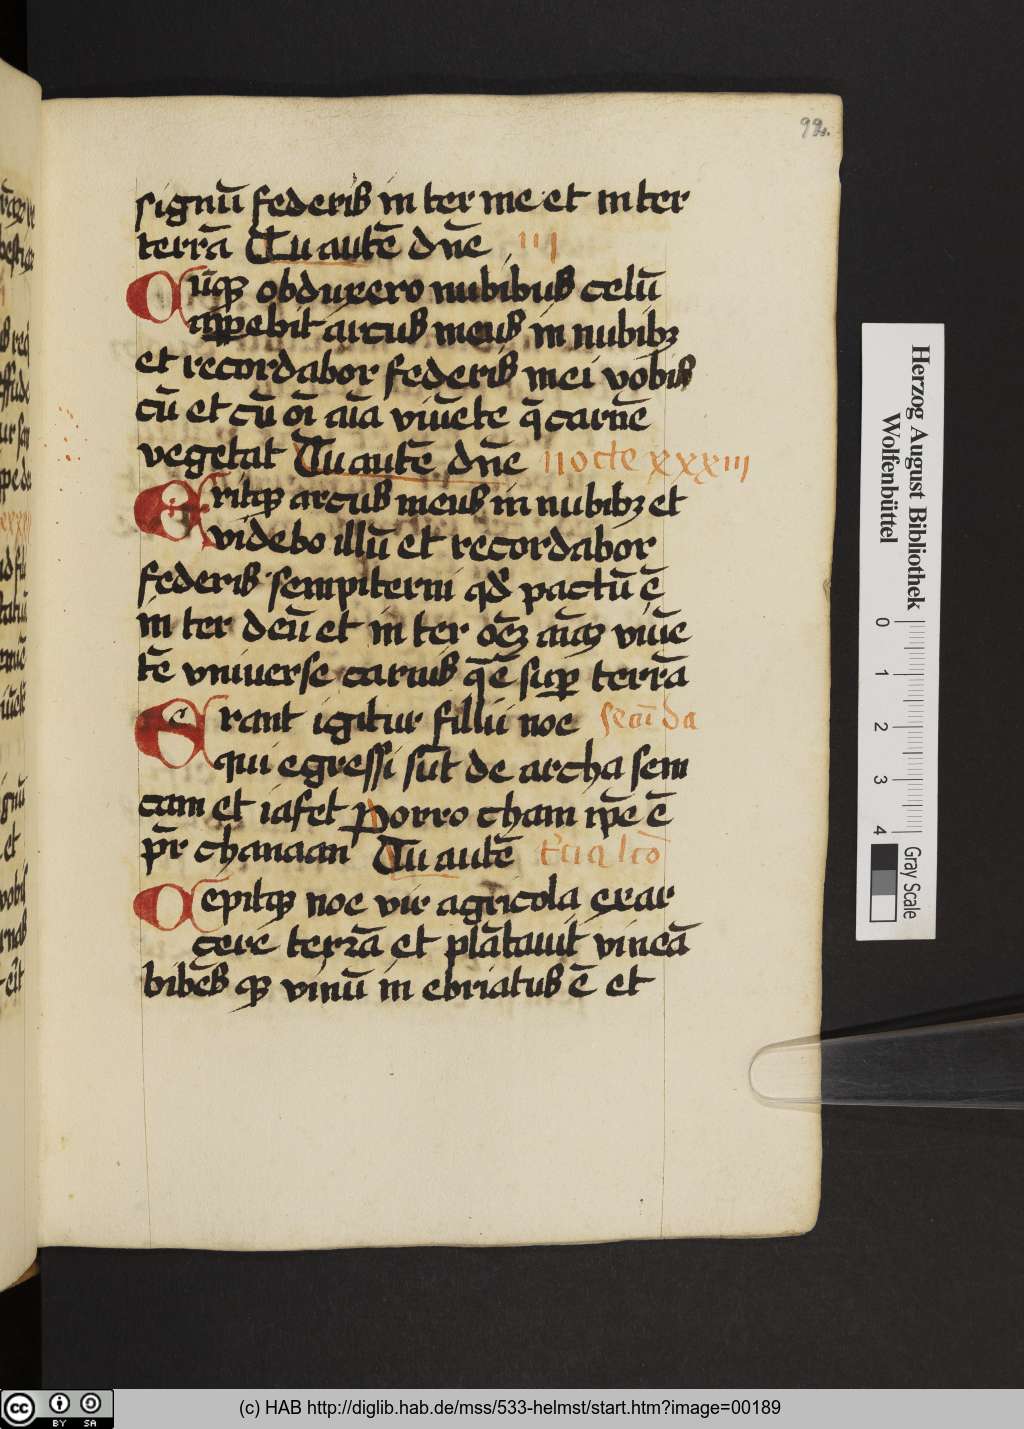 99.
signū federis in ter me et in ter
terrā Tu autē dn̄e iii
Cūqꝫ obduxero nubibus celū
apꝑebit arcus meus in nubibꝫ
et recordabor federis mei vobis
cū et cū oī aīa viuēte q̄ carnē
vegetat Tu autē dn̄e nocte xxxiii
Eritqꝫ arcus meus in nubibꝫ et
videbo illū et recordabor
federis sempiterni qd̄ pactū ē
in ter deū et in ter oēꝫ aīaꝫ viuē
tē vniuerse carnis q̄ ē suꝑ terrā
Erant igitur fillii noe secūda
qui egressi sūt de archa sem
cam et iafet Porro cham ip̄e ē
pr̄ chanaan Tu autē t'cia lcō
Cepitqꝫ noe vir agricola exar
cere terrā et plātauit vineā
bibēs qꝫ vinū in ebriatus ē et
Herzog August Bibliothek
Wolfenbüttel
0 1 2 3 4
Gray Scale
cc BY SA
(c) HAB http://diglib.hab.de/mss/533-helmst/start.htm?image=00189